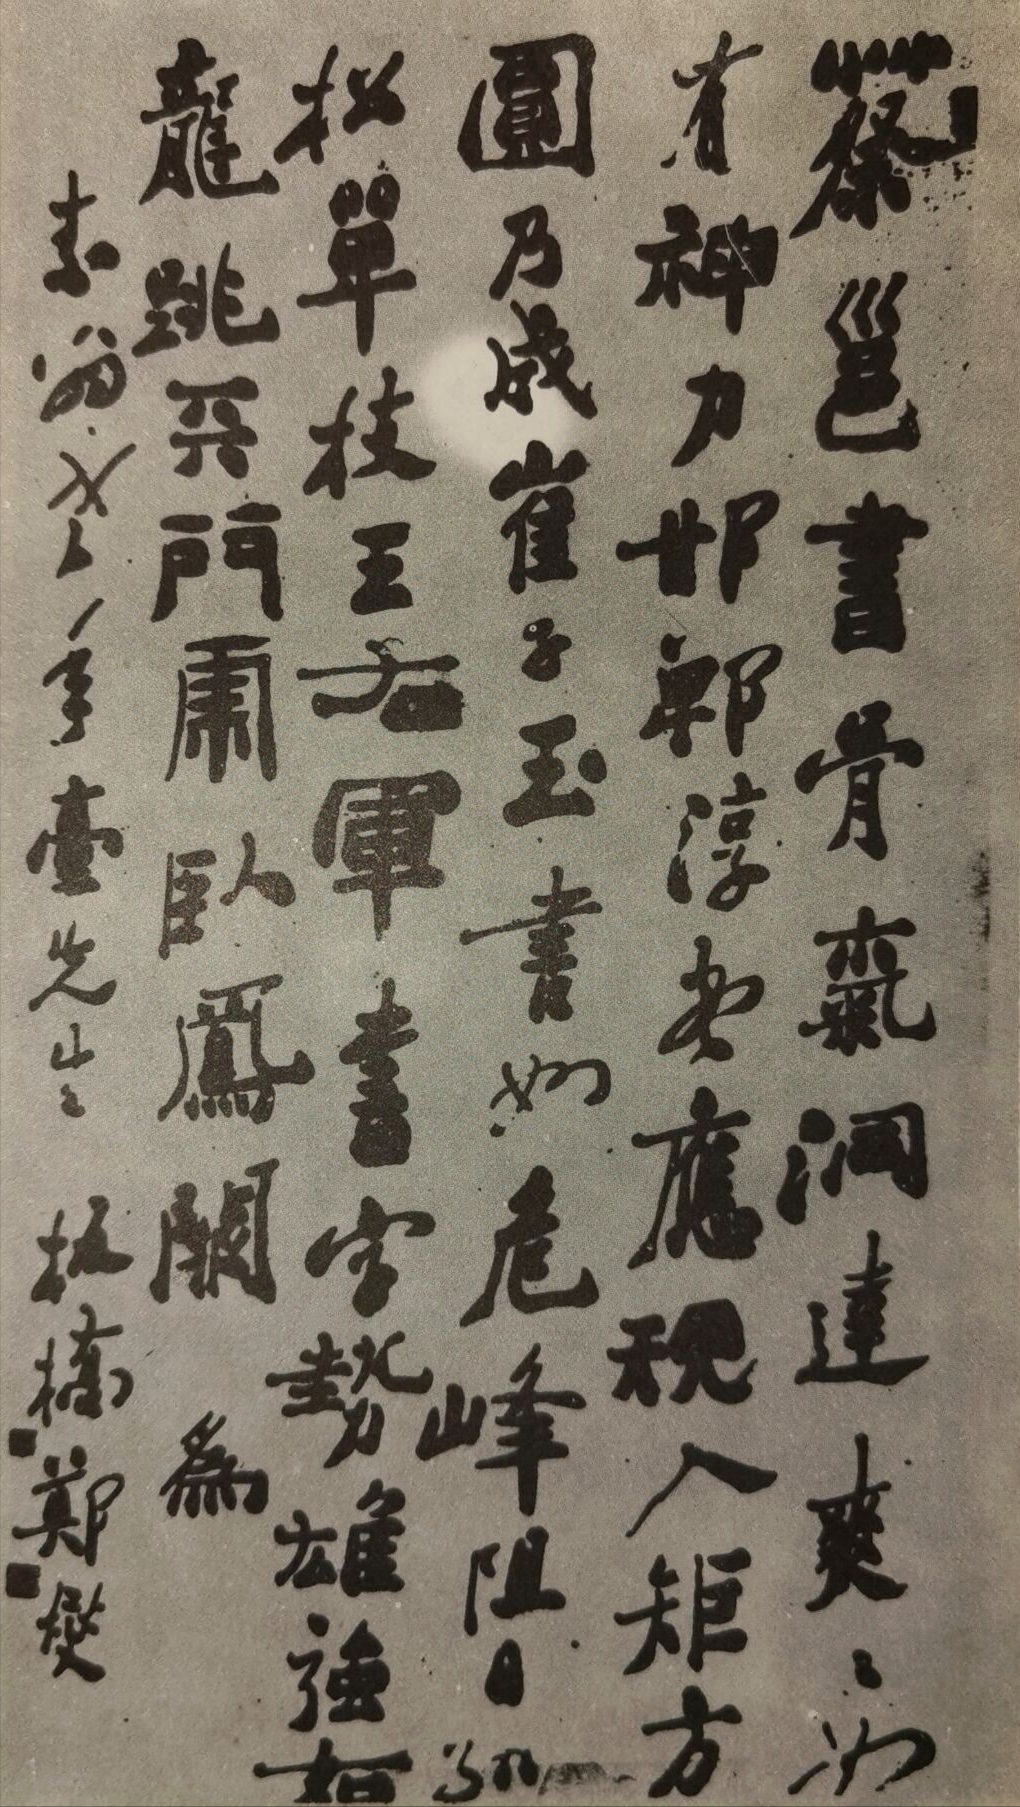 蔡邕書骨氣洞達爽〻如
有神力邯鄲淳書應規入矩方
圓乃成崔子玉書如危峰阻日孤
松單枝王右軍書字勢雄強如
龍跳天門虎臥鳳閣 為
素翁老年臺先生 板橋鄭燮